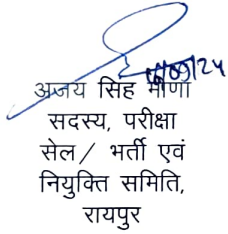 अजय सिंह मीणा
सदस्य, परीक्षा
सेल/ भर्ती एवं
नियुक्ति समिति,
रायपुर